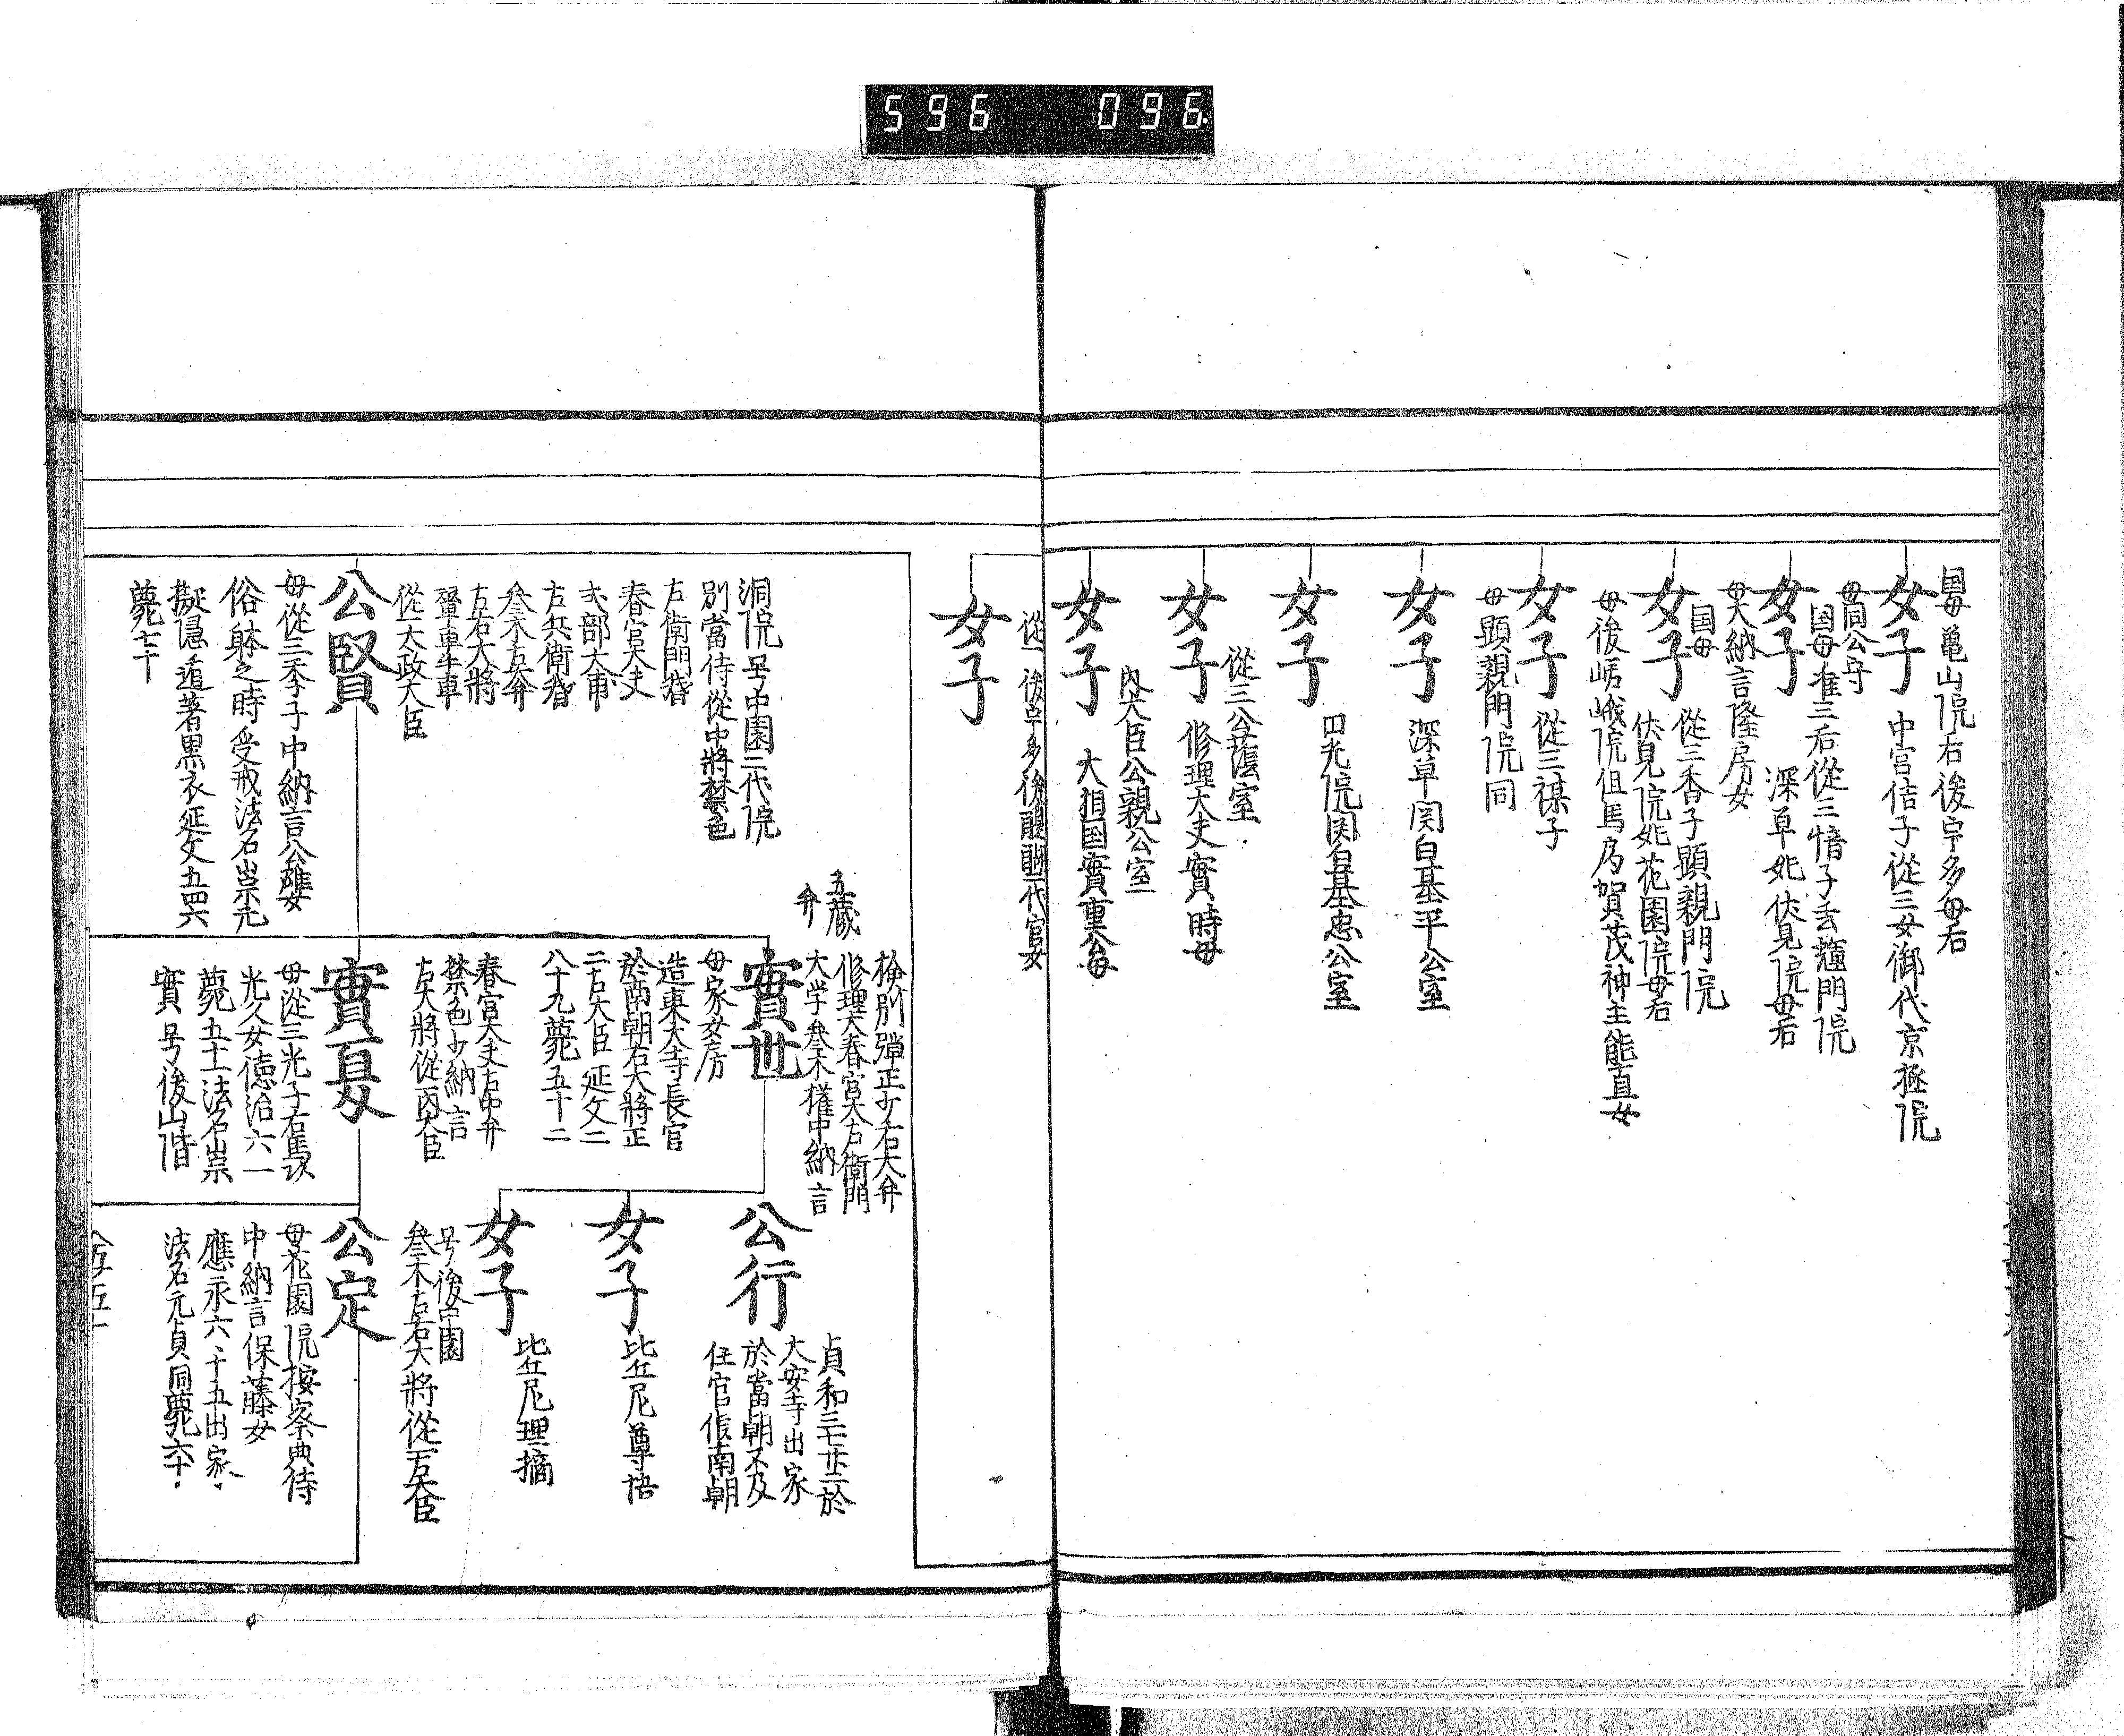 596 096
国母亀山院右後宇多母后
女子 中宮佶子従三女御代京極院
母同公守
国母准三后従三愔子玄輝門院
女子 深草妃伏見院母后
母大納言隆房女
国母 従三季子顕親門院
女子 伏見院妃花園院母后
母後嵯峨院但馬乃賀茂神主能直女
女子 従三禖子
母顕親門院同
女子 深草関白基平公室
女子 円光院関白基忠公室
従三公蔭室
女子 修理大夫實時母
内大臣公親公室
女子 大相国實重公母
従一後宇多後醍醐二代官女
女子
洞院号中園二代院
別當侍従中将禁色
左衛門督
春宮大夫
式部大甫
右兵衛督
参木左弁
左右大将
輦車牛車
従一太政大臣
公賢
母従三季子中納言公雄女
俗躰之時受戒法名崇元
擬隠遁著黒衣延文五四六
薨七十
五蔵
弁
検別弾正少右大弁
修理大春宮大右衛門
大学参木権中納言
實世
母家女房
造東大寺長官
於南朝右大将正
二右大臣延文二
八十九薨五十二
春宮大夫右中弁
禁色少納言
右大将従一内大臣
實夏
母従三光子右馬
光久女徳治六一
薨五十二法名崇
實号後山階
公行
貞和三七廿二於
大安寺出家
於當朝不及
任官依南朝
女子 比丘尼尊悟
女子 比丘尼理摘
号後中園
参木左右大将従一右大臣
公定
母花園院按察典侍
中納言保藤女
應永六六十五出家
法名元貞同薨六十